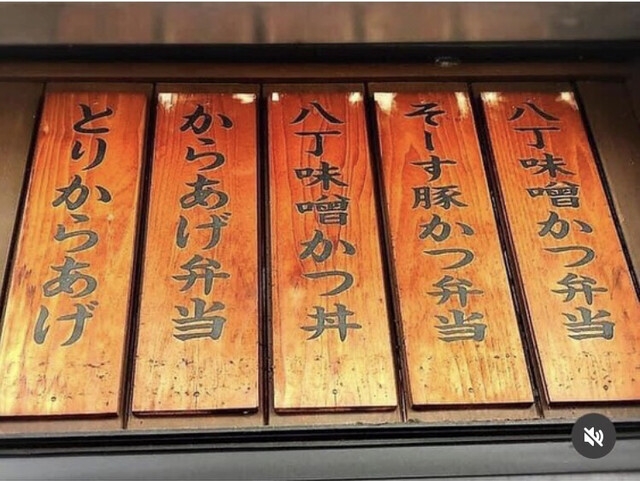 八丁味噌かつ弁当
そーす豚かつ弁当
八丁味噌かつ丼
からあげ弁当
とりからあげ